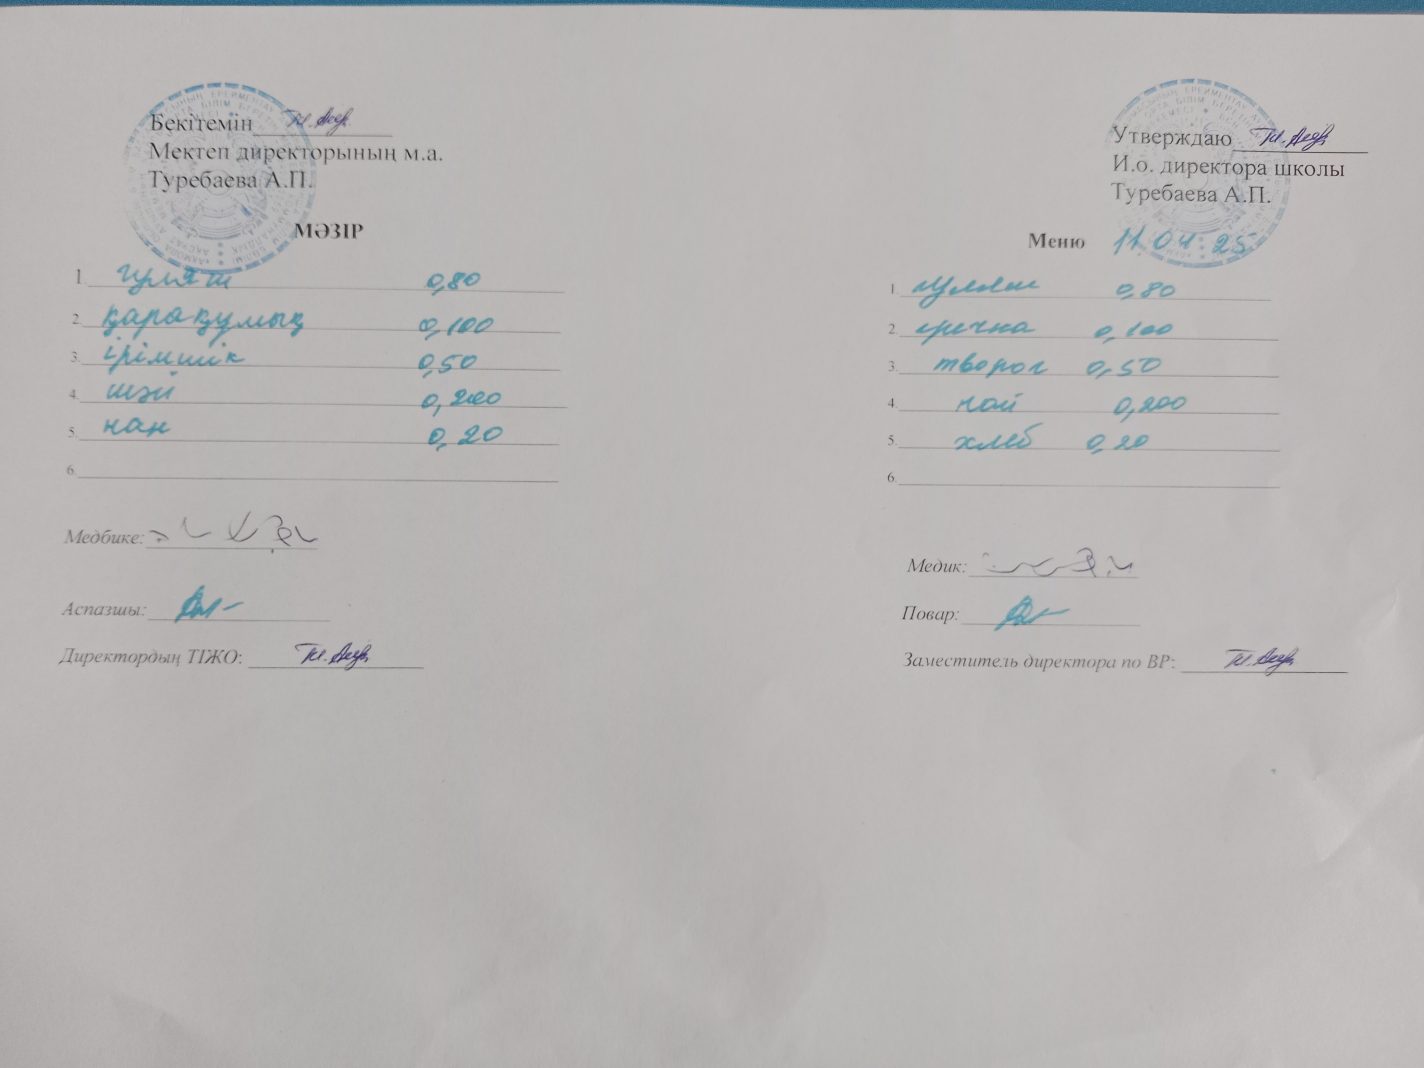 Бекітемін
Мектеп директорының м.а.
Туребаева А.П.
МӘЗІР
1. гуляш 0,80
2. қарақұмық 0,100
3. ірімшік 0,50
4. шәй 0,200
5. нан 0,20
6.
Медбике:
Аспазшы:
Директордың ТІЖО:
Утверждаю
И.о. директора школы
Туребаева А.П.
Меню 11.04.25
1. гуляш 0,80
2. гречка 0,100
3. творог 0,50
4. чай 0,200
5. хлеб 0,20
6.
Медик:
Повар:
Заместитель директора по ВР: